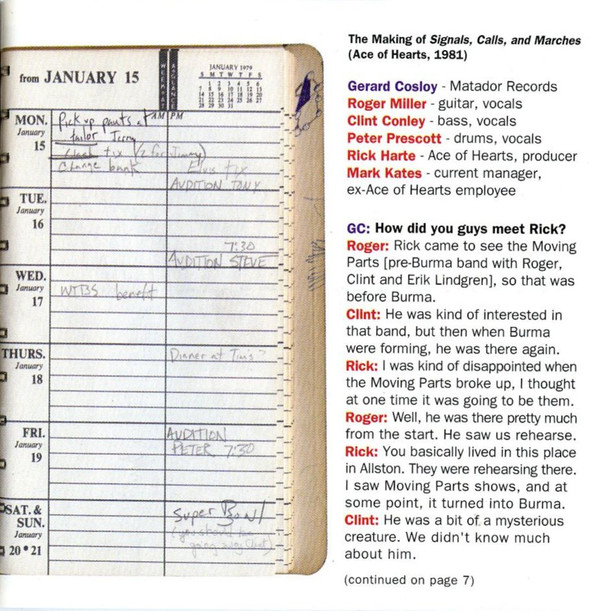 from JANUARY 15
WEEK AT A GLANCE
JANUARY 1979
S M T W T F S
1 2 3 4 5 6
7 8 9 10 11 12 13
14 15 16 17 18 19 20
21 22 23 24 25 26 27
28 29 30 31
AM PM
MON.
January
15
Pick up pants at
tailor Jerry
Clash tix (2 for Jimmy)
change bank
Elvis tix
AUDITION TONY
TUE.
January
16
7:30
AUDITION STEVE
WED.
January
17
WTBS benefit
THURS.
January
18
Dinner at Tim's?
FRI.
January
19
AUDITION
PETER 7:30
SAT. &
SUN.
January
20 • 21
Super Bowl
(you should be
going away
The Making of Signals, Calls, and Marches
(Ace of Hearts, 1981)
Gerard Cosloy - Matador Records
Roger Miller - guitar, vocals
Clint Conley - bass, vocals
Peter Prescott - drums, vocals
Rick Harte - Ace of Hearts, producer
Mark Kates - current manager,
ex-Ace of Hearts employee
GC: How did you guys meet Rick?
Roger: Rick came to see the Moving
Parts [pre-Burma band with Roger,
Clint and Erik Lindgren], so that was
before Burma.
Clint: He was kind of interested in
that band, but then when Burma
were forming, he was there again.
Rick: I was kind of disappointed when
the Moving Parts broke up, I thought
at one time it was going to be them.
Roger: Well, he was there pretty much
from the start. He saw us rehearse.
Rick: You basically lived in this place
in Allston. They were rehearsing there.
I saw Moving Parts shows, and at
some point, it turned into Burma.
Clint: He was a bit of a mysterious
creature. We didn't know much
about him.
(continued on page 7)